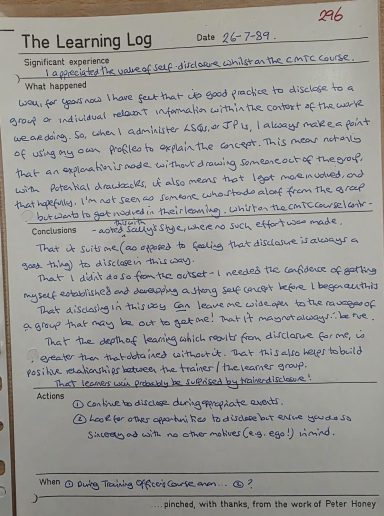 296
The Learning Log Date 26-7-89.
Significant experience
I appreciated the value of self-disclosure whilst on the CMTC course.
What happened
Well, for years now I have felt that it's good practice to disclose to a
group or individual relevant information within the context of the work
we are doing. So, when I administer LSQs, or JPIs, I always make a point
of using my own profiles to explain the concept. This means not only
that an explanation is made without drawing someone out of the group,
with potential drawbacks, it also means that I get more involved, and
that hopefully, I'm not seen as someone who stands aloof from the group
but wants to get involved in their learning. Whilst on the CMTC course I contr-
Conclusions - asted this with Sally's style, where no such effort was made.
That it suits me (as opposed to feeling that disclosure is always a
good thing) to disclose in this way.
That I didn't do so from the outset - I needed the confidence of getting
myself established and developing a strong self concept before I began all this
That disclosing in this way can leave me wide open to the ravages of
a group that may be out to get me! That it may not always ∴ be true.
That the depth of learning which results from disclosure for me, is
greater than that obtained without it. That this also helps to build
positive relationships between the trainer / the learner group.
That learners will probably be surprised by trainer disclosure!
Actions
① Continue to disclose during appropriate events.
② Look for other opportunities to disclose but ensure you do so
sincerely and with no other motives (e.g. ego!) in mind.
When ① During Training Officers Course ... ② ?
.... pinched, with thanks, from the work of Peter Honey